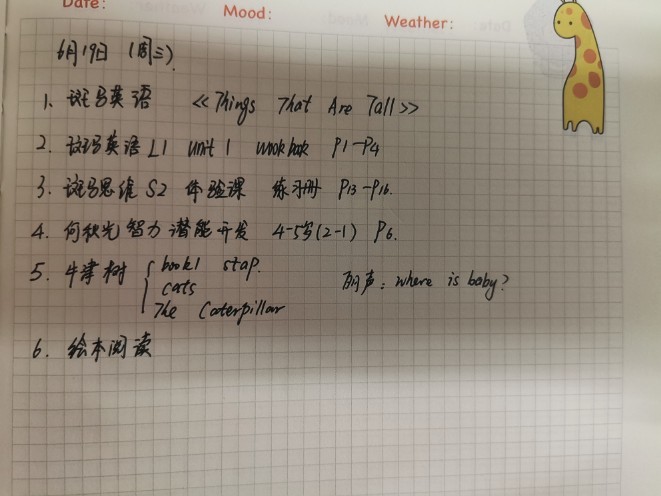 Date:
Mood:
Weather:
6月19日 (周三)
1、斑马英语 《Things That Are Tall》
2. 斑马英语 L1 unit 1 wookbook P1-P4
3. 斑马思维 S2 体验课 练习册 P13-P16.
4. 何秋光智力潜能开发 4-5岁(2-1) P6.
5. 牛津树 { book1 stap.
cats
The Caterpillar
朗声: where is baby?
6. 绘本阅读